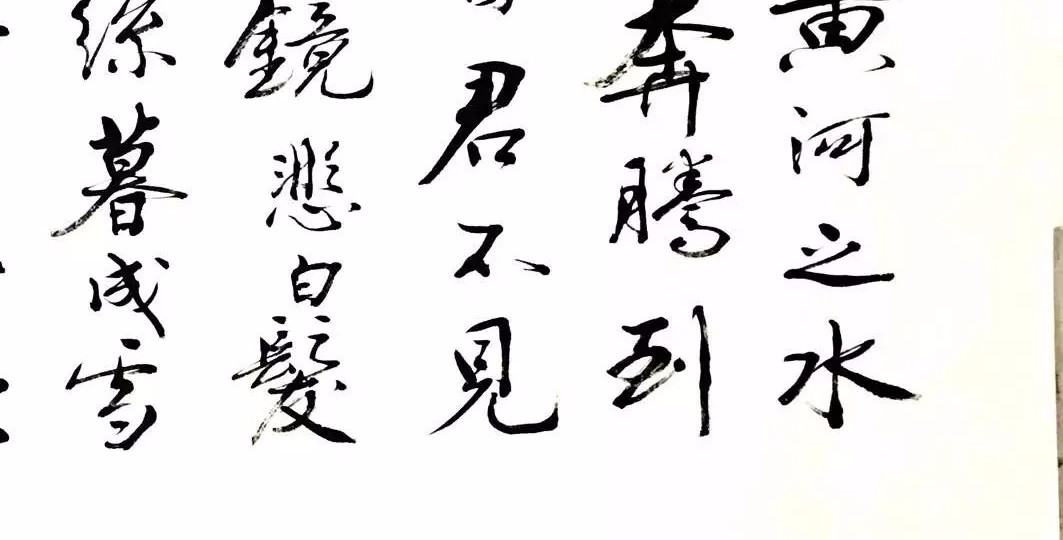 黄河之水
奔騰到
君不见
鏡悲白髮
絲暮成雪